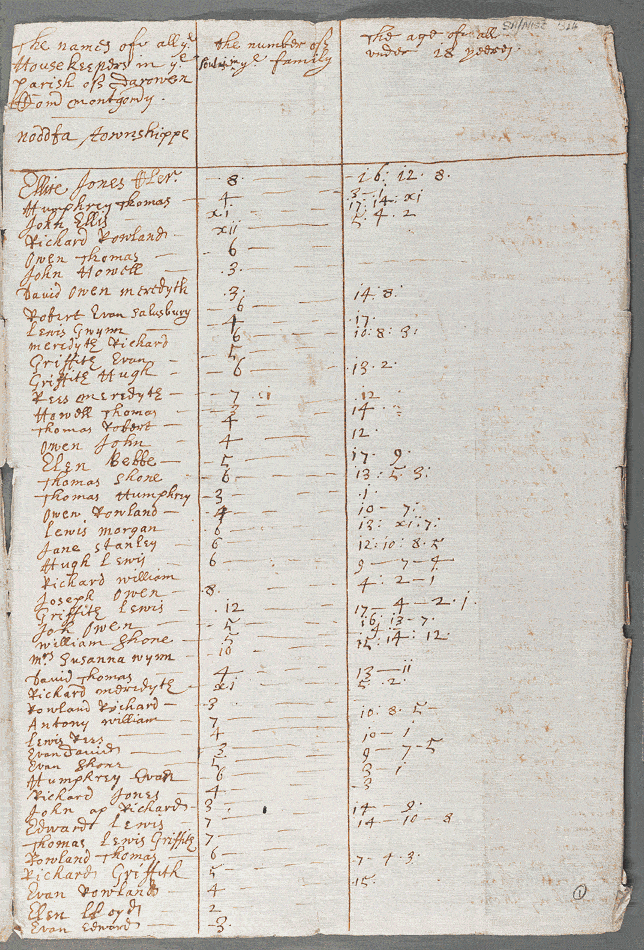 SA/MISC 1316
The names off all yᵉ the number off the age off all
Housekeepers in yᵉ soules in yᵉ family under 18 yeeres
Parish off Darowen
Com Montgomry.
noddfa Townshippe
Ellice Jones Cler. 8 16: 12. 8.
Humphrey Thomas 4 3 . 1
John Ellis xi 17: 14: xi
Richard Rowland xii 5. 4. 2
Owen Thomas 6
John Howell .3.
David Owen meredyth .3. 14. 8.
Robert Evan Salusbury 6
Lewis Gwynn 4 17.
meredyth Richard 6 10: 8: 3:
Griffith Evan 5
Griffith Hugh 6 13. 2.
Rees meredyth 7 .12
Howell Thomas 3 14
Thomas Robert 4
Owen John 4 12.
Elen Bebbe 5 17. 9.
Thomas Shone 6 13. 5. 3.
Thomas Humphrey 3 .1.
Owen Rowland 4 10 - 7.
Lewis morgan 6 13: xi: 7.
Jane Stanley 6 12: 10: 8. 5
Hugh Lewis 6 9 - 7 - 4
Richard William
Joseph Owen 8. 4. 2 - 1
Griffith Lewis 12 17 - 4 - 2. 1.
Joh Owen 5 16, 13 - 7.
William Shone 5
mʳˢ Susanna Wynn 10 15: 14: 12.
David Thomas 4 13 - 11
Richard meredyth xi 5. 2.
Rowland Richard 3
Antony William 7 10: 8. 5
Lewis Rees 4 10 - 1
Evan David 3 9 - 7 - 5
Evan Shone 5 3 - 1
Humphrey Evan 6 3
Richard Jones 4
John ap Richard 3. 14 - 9.
Edward Lewis 7 14 - 10 - 8
Thomas Lewis Griffith 7
Rowland Thomas 6 7. 4. 3.
Richard Griffith 5 15.
Evan Rowland 4
Elen Lloyd 2
Evan Edward 3.
1